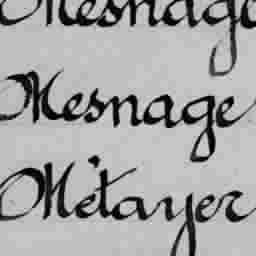 Mesnage
Mesnage
Métayer